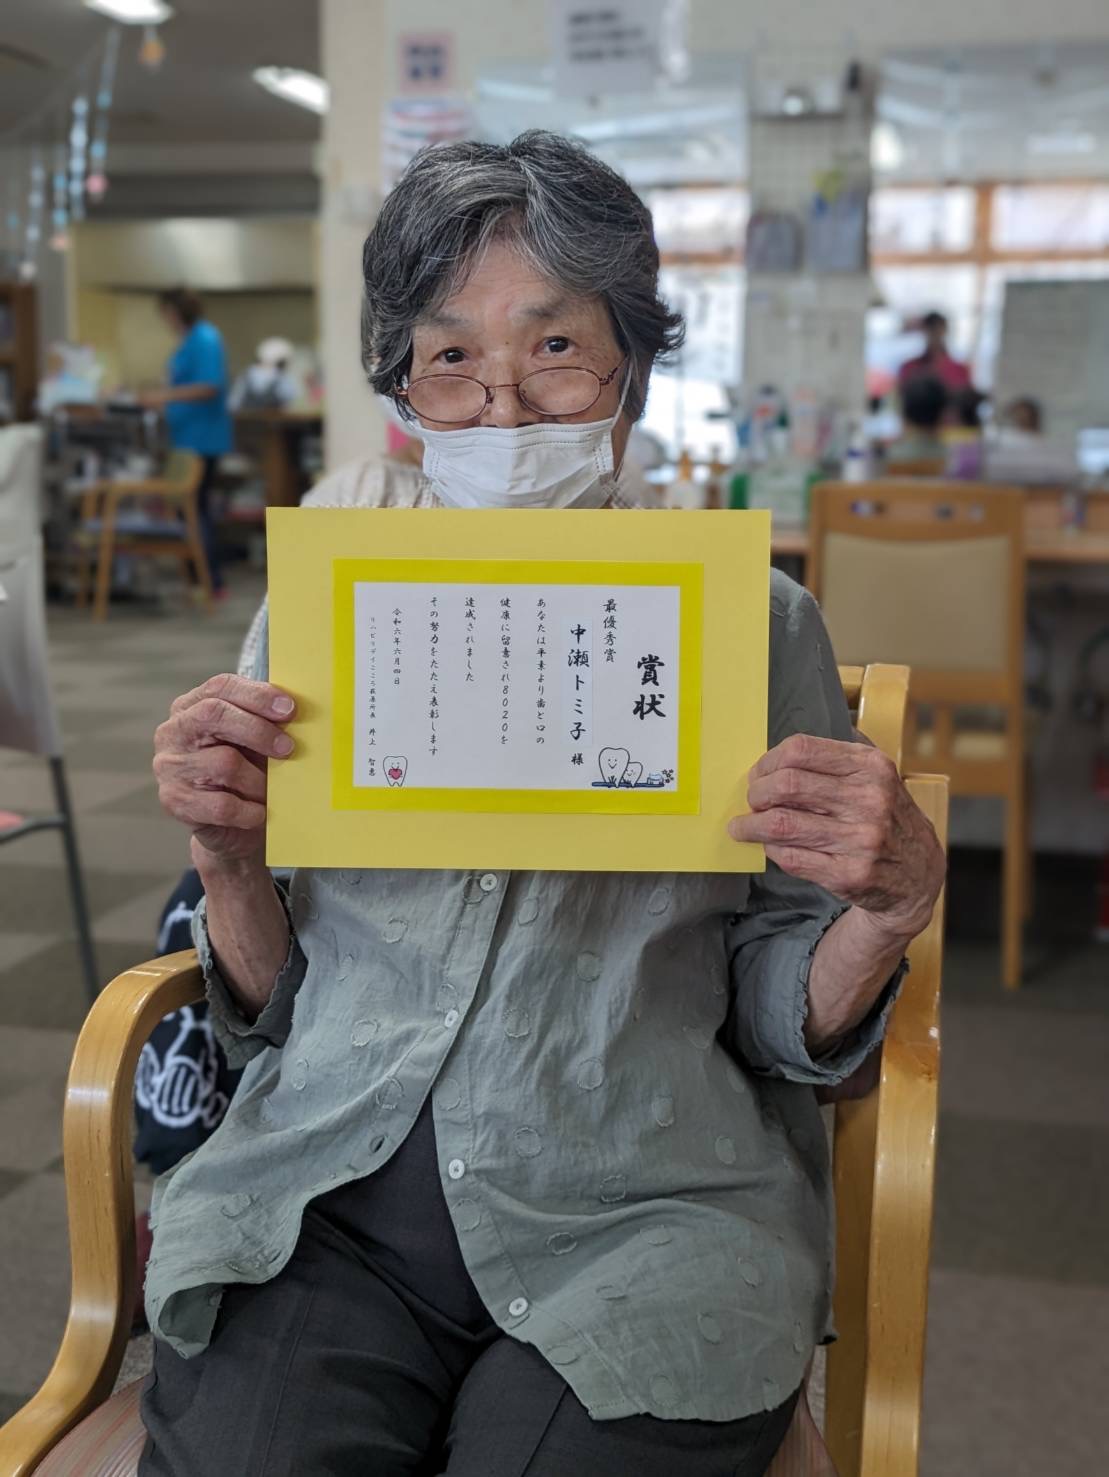 賞状
最優秀賞
中瀬トミ子 様
あなたは平素より歯と口の
健康に留意され8020を
達成されました
その努力をたたえ表彰します
令和六年六月四日
リハビリデイこころ萩原所長 井上 智恵